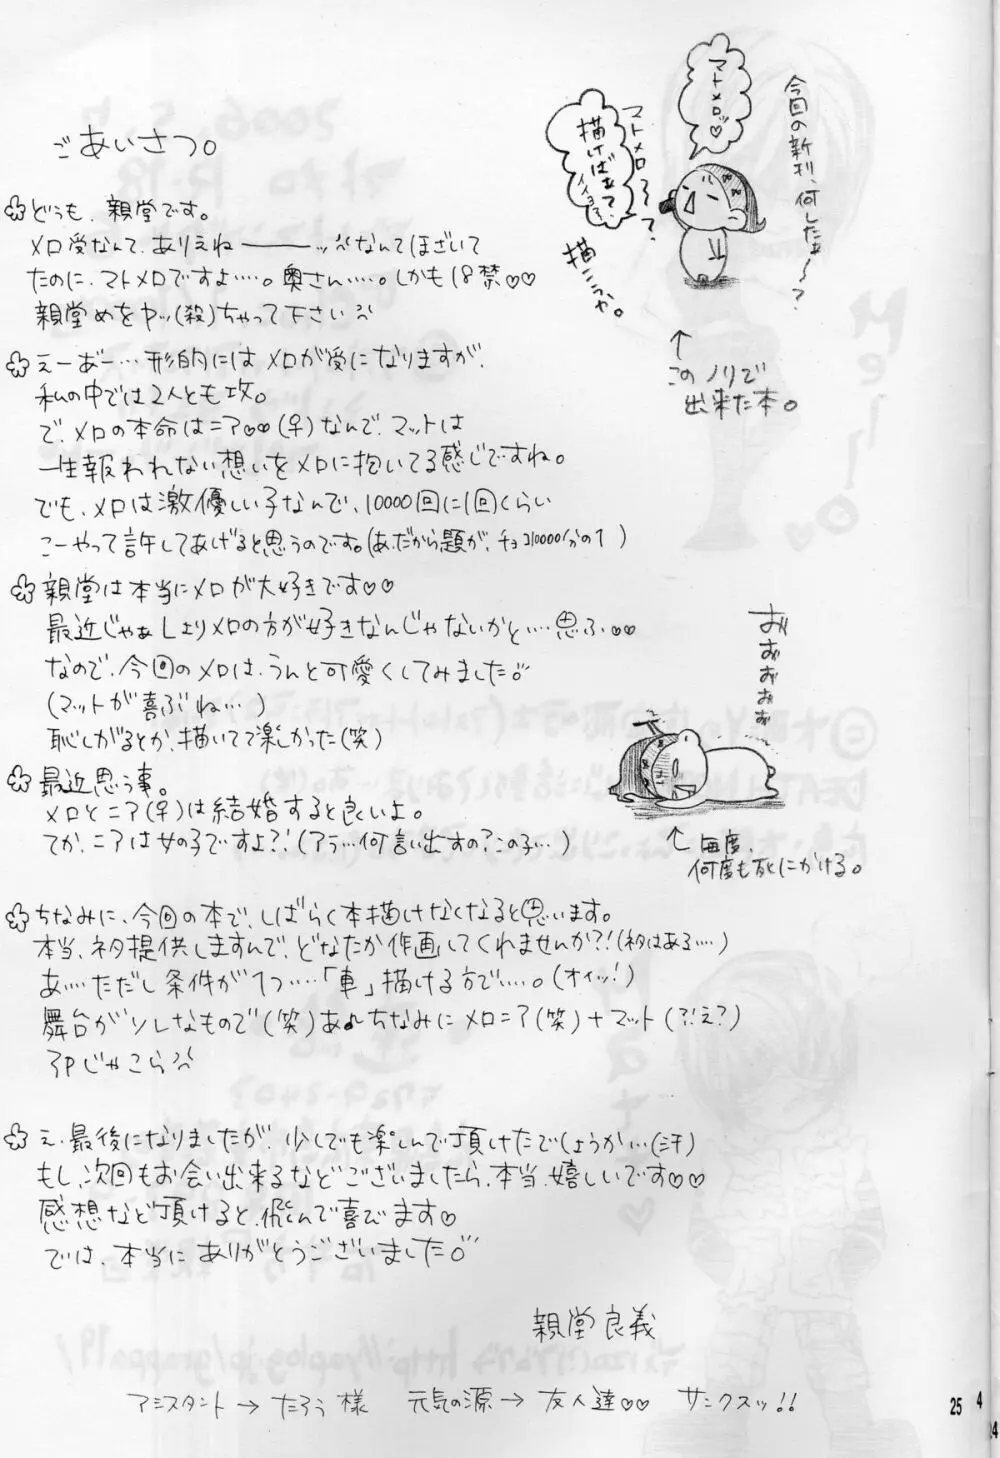 ごあいさつ。
どうも、親堂です。
メロ受なんて、ありえねーーーッ なんてほざいて
たのに、マトメロですよ‥‥。奥さん‥‥。しかも18禁♡♡
親堂めをヤッ(殺)ちゃって下さい
えーあー…形的にはメロが受になりますが、
私の中では2人とも攻。
で、メロの本命はニア♡♡(♀)なんで、マットは
一生報われない想いをメロに抱いてる感じですね。
でも、メロは激優しい子なんで、10000回に1回くらい
こーやって許してあげると思うのです。(あ、だから題が、チョコ10000分の1)
親堂は本当にメロが大好きです♡♡
最近じゃぁLよりメロの方が好きなんじゃないかと…思ふ♡♡
なので、今回のメロは、うんと可愛くしてみました
(マットが喜ぶね…)
恥しがるとか、描いてて楽しかった(笑)
最近思う事。
メロとニア(♀)は結婚すると良いよ。
てか、ニアは女の子ですよ?!(アラ…何言い出すの?この子…)
ちなみに、今回の本で、しばらく本描けなくなると思います。
本当、ネタ提供しますんで、どなたか作画してくれませんか?!(ネタはある‥‥)
あ‥‥ただし条件が1つ‥‥「車」描ける方で‥‥。(オイッ!)
舞台がソレなもので(笑)あ♪ちなみにメロニア(笑)+マット(?!え?)
3Pじゃこら
え、最後になりましたが、少しでも楽しんで頂けたでしょうか…(汗)
もし、次回もお会い出来るなどございましたら、本当、嬉しいです♡♡
感想など頂けると、飛んで喜びます♡
では、本当にありがとうございました
親堂良義
アシスタント→たろう様 元気の源→友人達♡♡ サンクスッ!!
今回の新刊、何したぁ〜?
マトメロッ♡
マトメロ〜?
描けばぁて、イイヨ
描こうか。
↑
このノリで
出来た本。
おおおおお
↑毎度、
何度も死にかける。
25
4